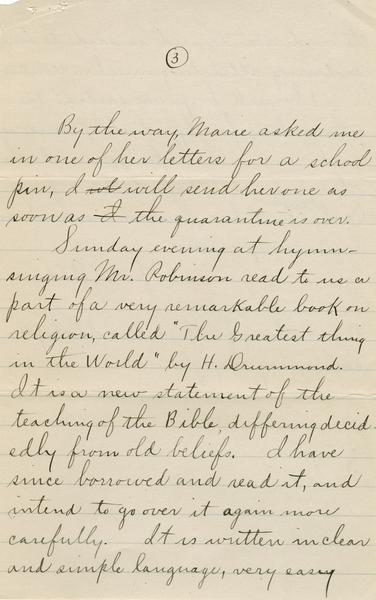 3
By the way, Marie asked me
in one of her letters for a school
pin, I will send her one as
soon as I the quarantine is over.
Sunday evening at hymn-
singing Mr. Robinson read to us a
part of a very remarkable book on
religion, called "The Greatest thing
in the World" by H. Drummond.
It is a new statement of the
teaching of the Bible, differing decid-
edly from old beliefs. I have
since borrowed and read it, and
intend to go over it again more
carefully. It is written in clear
and simple language, very easy